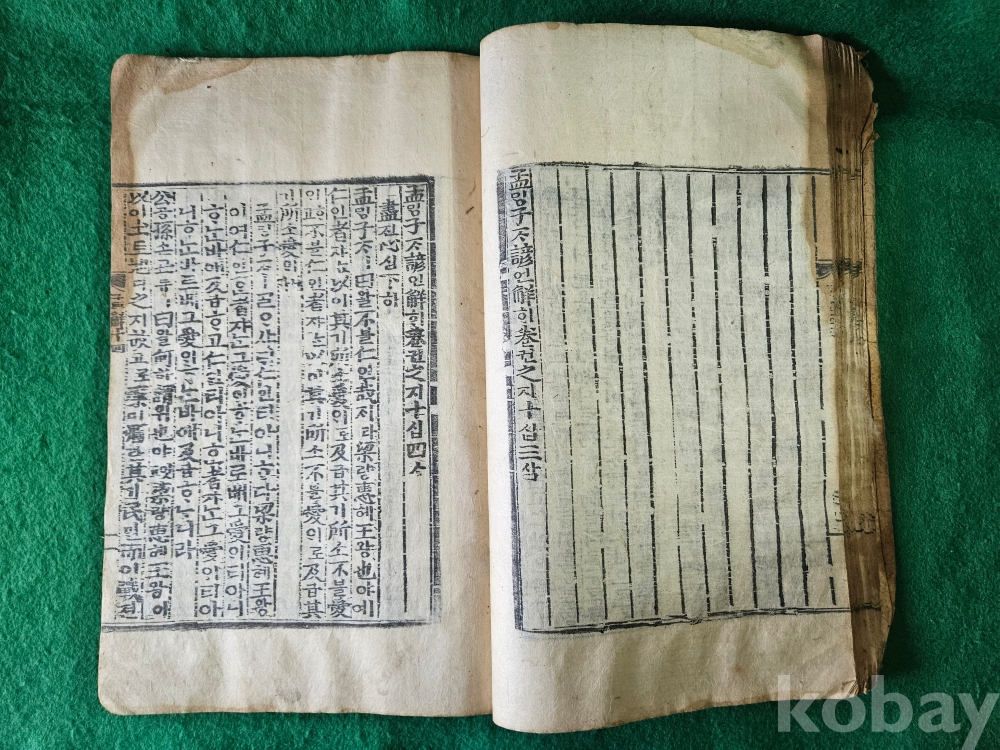 孟ᄆᆡᆼ子ᄌᆞ諺언解ᄒᆡ卷권之지十십三삼
孟ᄆᆡᆼ子ᄌᆞ諺언解ᄒᆡ卷권之지十십四ᄉᆞ
盡진心심下하
孟ᄆᆡᆼ子ᄌᆞㅣ曰왈不블仁인哉ᄌᆡ라梁량惠혜王왕也야여
仁인者쟈ᄂᆞᆫ以이其기所소愛ᄋᆡ로及급其기所소不블愛
ᄋᆡ고不블仁인者쟈ᄂᆞᆫ以이其기所소不블愛ᄋᆡ로及급其
기所소愛ᄋᆡ니라
孟ᄆᆡᆼ子ᄌᆞㅣᄀᆞᆯᄋᆞ샤ᄃᆡ仁인티아니ᄒᆞ다梁량惠혜王왕
이여仁인ᄒᆞᆫ者쟈ᄂᆞᆫ그愛ᄋᆡᄒᆞᄂᆞᆫ바로ᄡᅥ그愛ᄋᆡ티아니
ᄒᆞᄂᆞᆫ바애及급ᄒᆞ고仁인티아니ᄒᆞᆫ者쟈ᄂᆞᆫ그愛ᄋᆡ티아
니ᄒᆞᄂᆞᆫ바로ᄡᅥ그愛ᄋᆡᄒᆞᄂᆞᆫ바애及급ᄒᆞᄂᆞ니라
公공孫손丑튜ㅣ曰왈何하謂위也야梁량惠혜王왕이
以이土토地디之지故고로糜미爛란其기民민而이戰젼
kobay